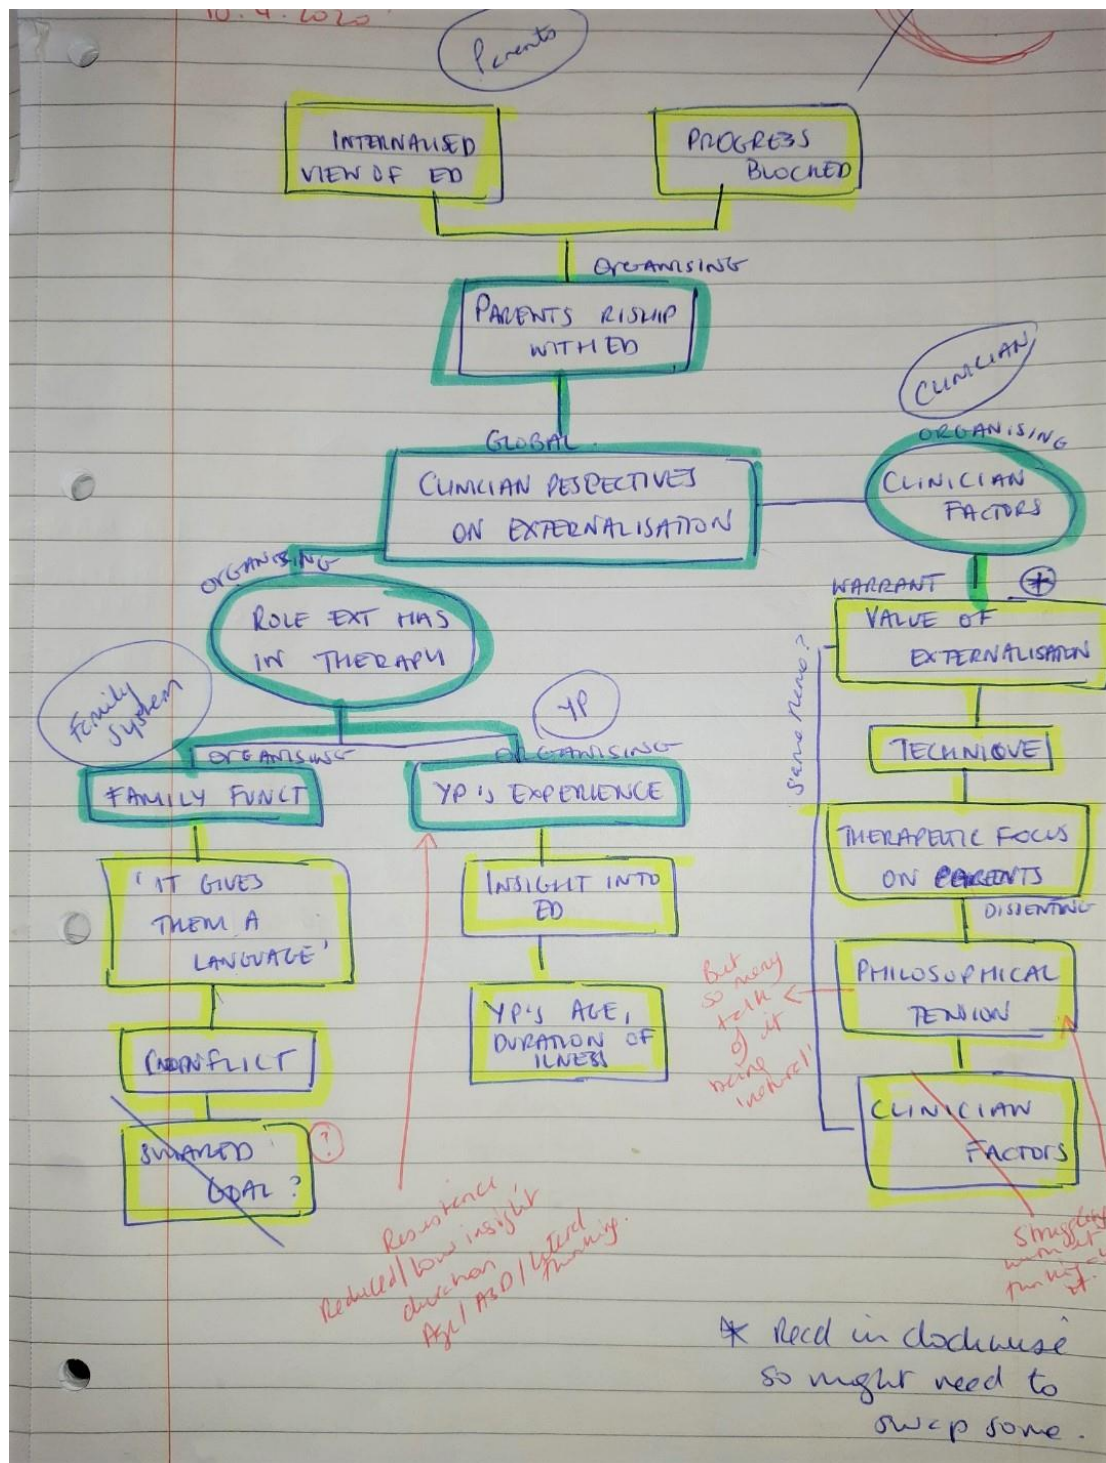 10.4.2020
Parents
INTERNALISED
VIEW OF ED
PROGRESS
BLOCKED
ORGANISING
PARENTS R'SHIP
WITH ED
GLOBAL
CLINICIAN PESPECTIVES
ON EXTERNALISATION
CLINICIAN
ORGANISING
CLINICIAN
FACTORS
ORGANISING
ROLE EXT HAS
IN THERAPY
Family
System
YP
ORGANISING
FAMILY FUNCT
'IT GIVES
THEM A
LANGUAGE'
CONFLICT
SHARED
GOAL?
?
ORGANISING
YP'S EXPERIENCE
INSIGHT INTO
ED
YP'S AGE,
DURATION OF
ILNESS
Resistence,
Reduced/low insight
duration
Age/ASD/lateral
thinking.
WARRANT
VALUE OF
EXTERNALISATION
Same memo?
TECHNIQUE
THERAPEUTIC FOCUS
ON PARENTS
DISSENTING
PHILOSOPHICAL
TENSION
But
so many
talk
of it
being
'natural'
CLINICIAN
FACTORS
* Read in clockwise
so might need to
swap some.